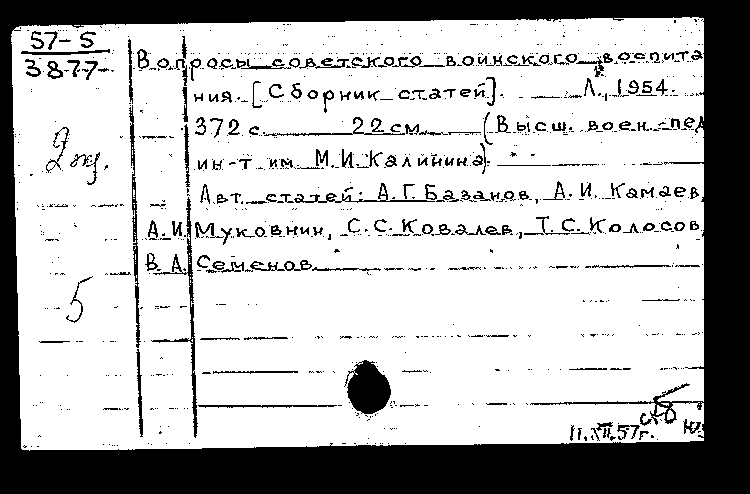 57-5
3877
Вопросы советского воинского воспита
ния. [Сборник статей]. Л., 1954.
372 с. 22 см. (Высш. воен.-пед
ин-т им. М.И. Калинина).
2 экз.
Авт. статей: А.Г. Базанов, А.И. Камаев,
А.И. Муковнин, С.С. Ковалев, Т.С. Колосов,
В.А. Семенов.
5
11.XII.57г.